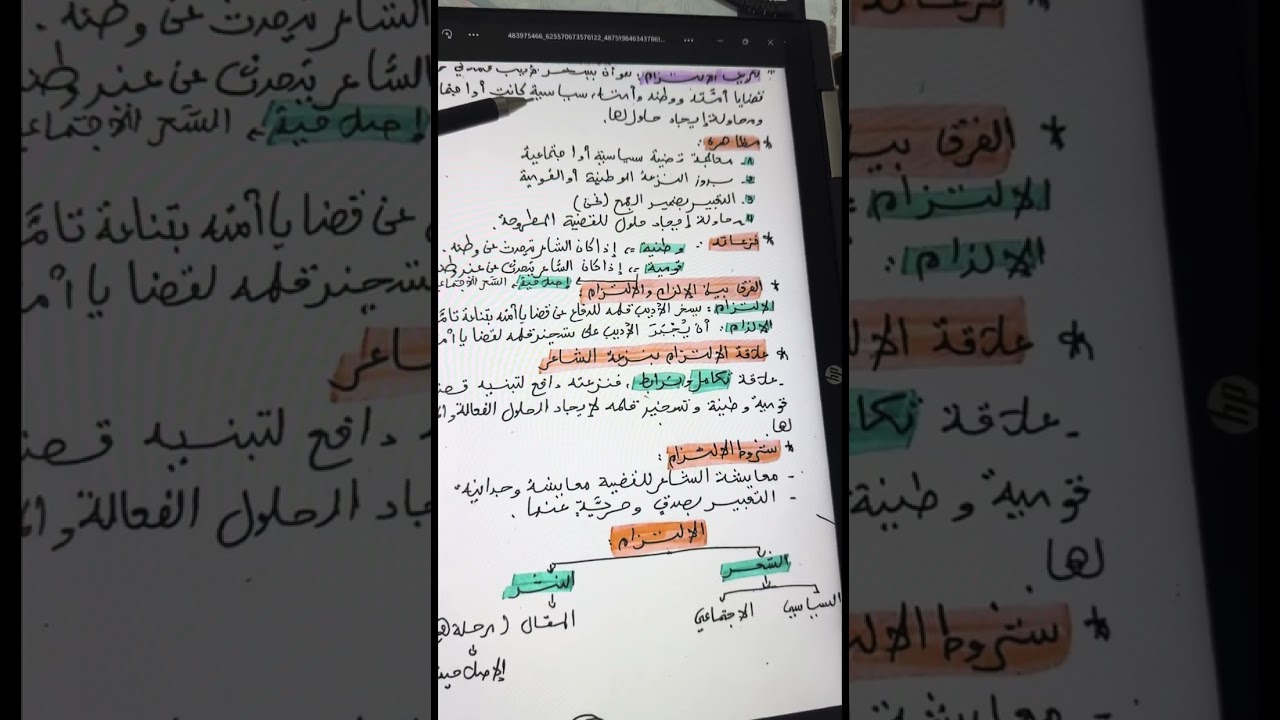 483975466_625570673576122_4875198463437861...
* تعريف الالتزام : هو أن يسخر الأديب قلمه في
قضايا أمته ووطنه وأمته، سياسية كانت أو اجتما
ومحاولة إيجاد حلول لها.
* مظاهره :
1. معالجة قضية سياسية أو اجتماعية
2. بروز النزعة الوطنية أو القومية
3. التعبير بضمير الجمع (نحن)
4. محاولة إيجاد حلول للقضية المطروحة.
* نزعاته : وطنية => إذا كان الشاعر يتحدث عن وطنه.
قومية => إذا كان الشاعر يتحدث عن غير وطنه
إصلاحية => الشعر الاجتماعي
* الفرق بين الإلزام والالتزام :
الالتزام : يسخر الأديب قلمه للدفاع عن قضايا أمته بقناعة تامّة
الإلزام : أن يُجْبَرَ الأديب على تسخير قلمه لقضايا أم
* علاقة الالتزام بنزعة الشاعر
- علاقة تكامل وترابط ، فنزعته دافع لتبنيه قض
قومية وطنية وتسخير قلمه لإيجاد الحلول الفعالة وال
لها.
* شروط الالتزام :
- معايشة الشاعر للقضية معايشة وجدانية
- التعبير بصدقٍ وحريَّةٍ عنها.
الالتزام :
الشعر
النثر
السياسي
الاجتماعي
المقال (مرحلة
الإصلاحية
hp